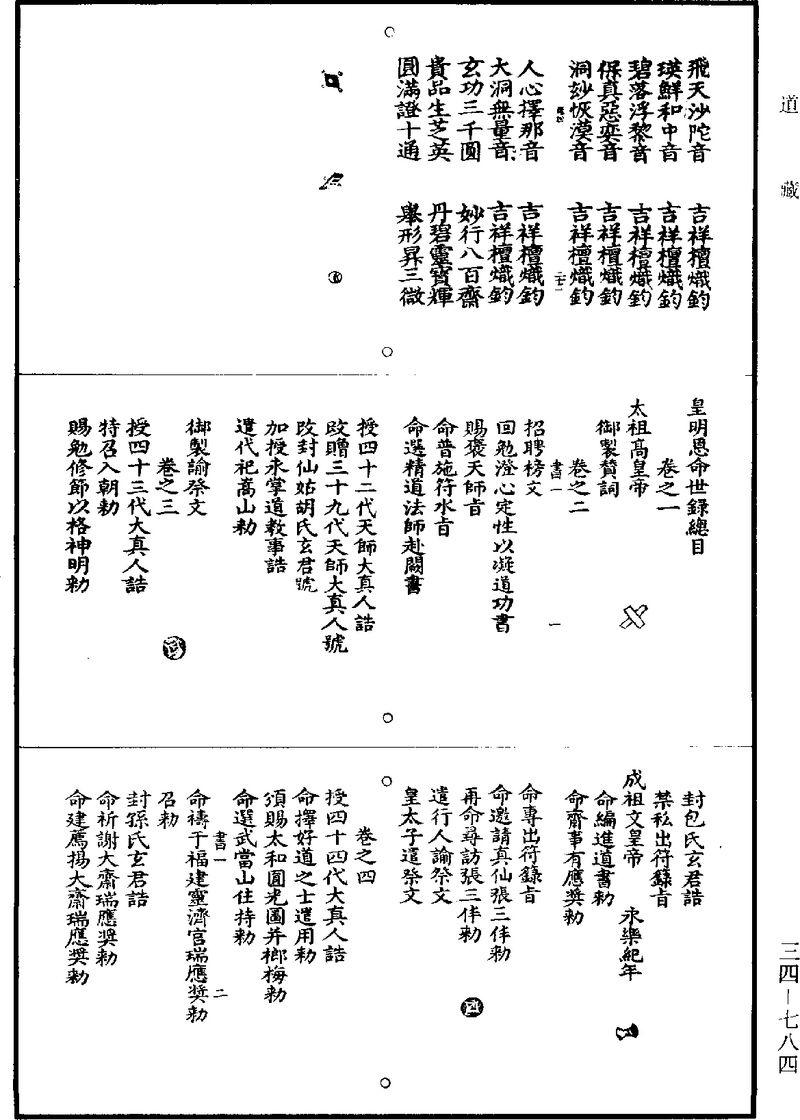 道藏
飛天沙陀音 吉祥檀熾鈞
瑛鮮和中音 吉祥檀熾鈞
碧落浮黎音 吉祥檀熾鈞
保真惡奕音 吉祥檀熾鈞
洞妙恢漠音 吉祥檀熾鈞
人心擇那音 吉祥檀熾鈞
大洞無量音 吉祥檀熾鈞
玄功三千圓 妙行八百齋
貴品生芝英 丹碧靈寶輝
圓滿證十通 舉形昇三微
皇明恩命世錄總目
卷之一
太祖高皇帝
御製贊詞
卷之二
書一 一
招聘榜文
回勉澄心定性以凝道功書
賜褒天師旨
命普施符水旨
命選精道法師赴闕書
授四十二代天師大真人誥
改贈三十九代天師大真人號
改封仙姑胡氏玄君號
加授永掌道教事誥
遣代祀嵩山勑
御製諭祭文
卷之三
授四十三代大真人誥
特召入朝勑
賜勉修節以格神明勑
封包氏玄君誥
禁私出符籙旨
成祖文皇帝 永樂紀年
命編進道書勑
命齋事有應獎勑
命專出符籙旨
命邀請真仙張三伴勑
再命尋訪張三伴勑
遣行人諭祭文
皇太子遣祭文
卷之四
授四十四代大真人誥
命擇好道之士遣用勑
頒賜太和圓光圖并榔梅勑
命選武當山住持勑
書一 二
命禱于福建靈濟宮瑞應獎勑
召勑
封孫氏玄君誥
命祈謝大齋瑞應獎勑
命建薦揚大齋瑞應獎勑
三四—七八四